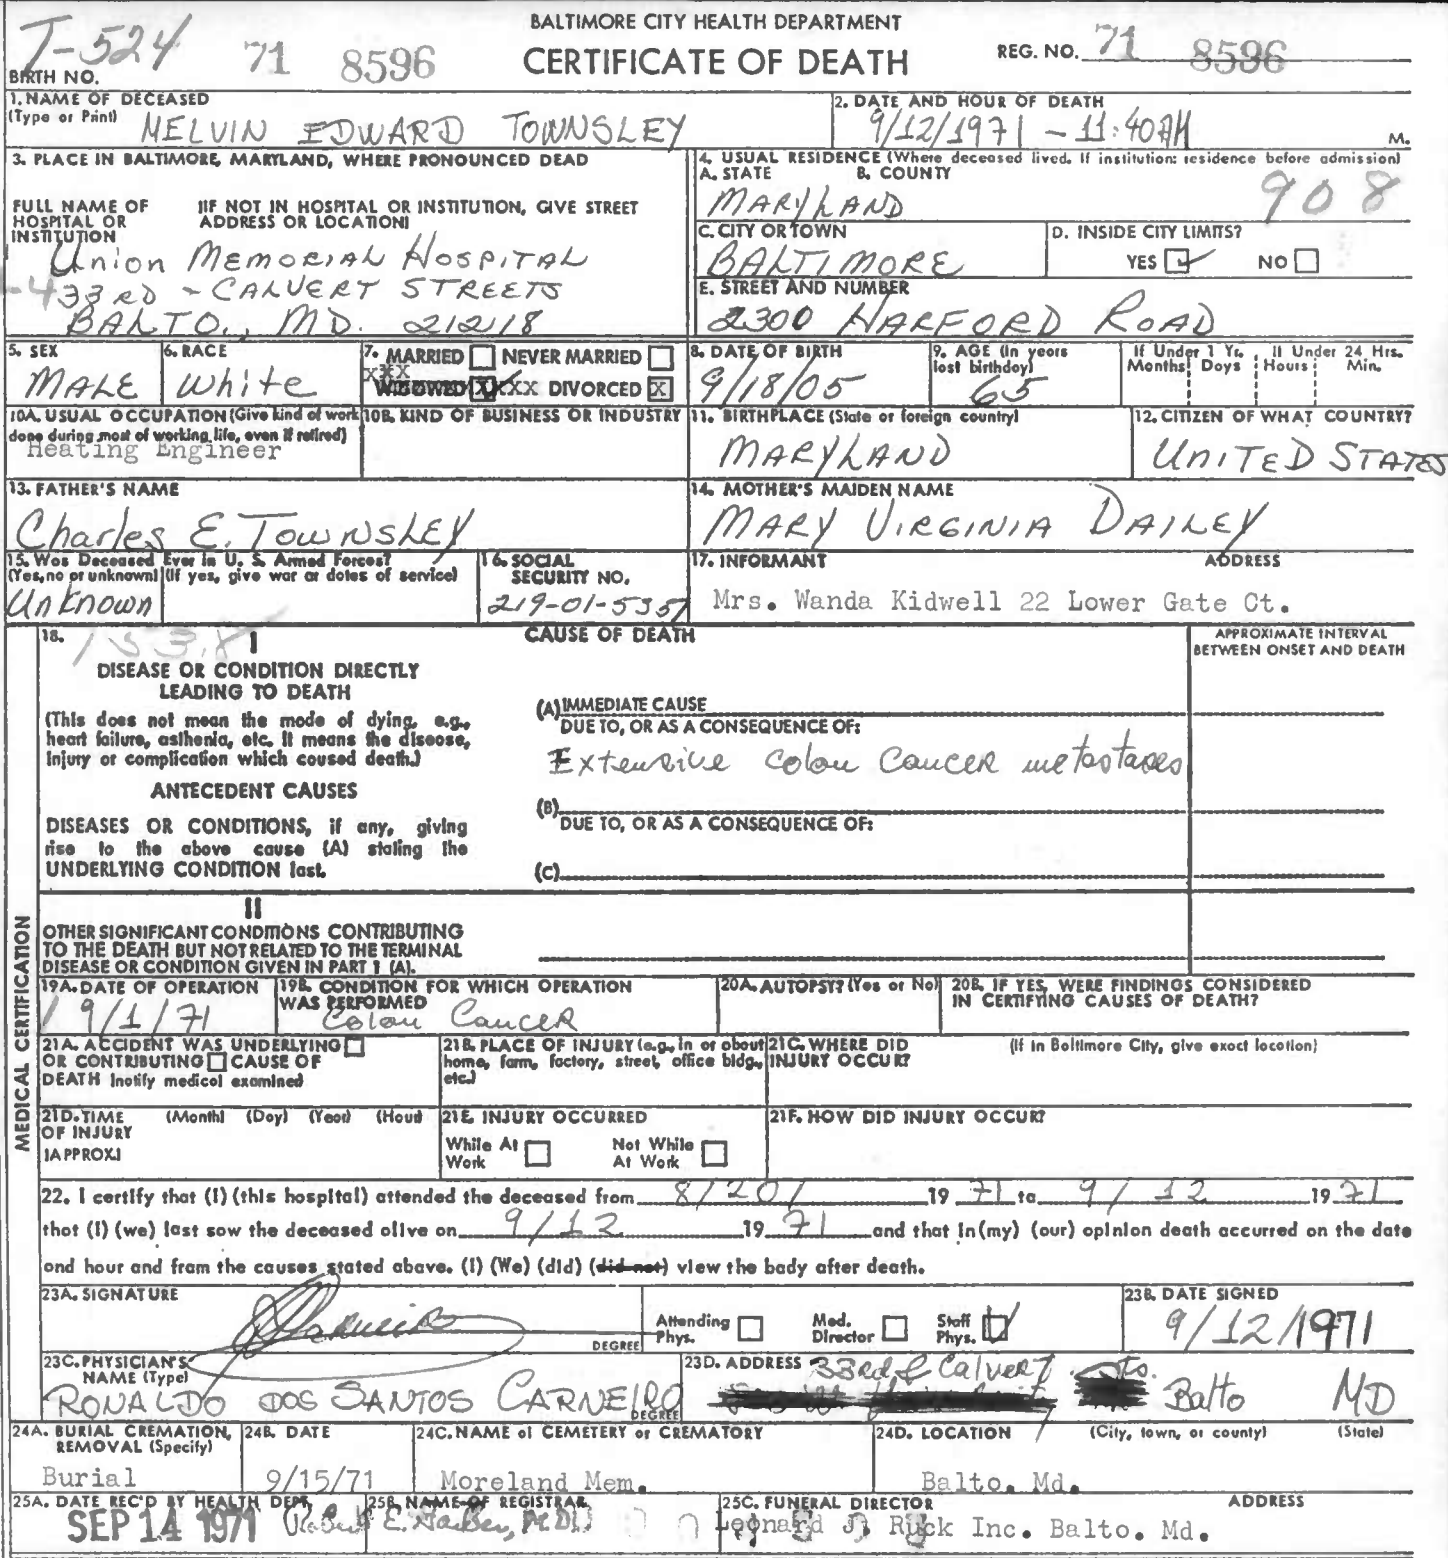 BALTIMORE CITY HEALTH DEPARTMENT
CERTIFICATE OF DEATH
T-524 71 8596
BIRTH NO.
REG. NO. 71 8596
1. NAME OF DECEASED
(Type or Print) MELVIN EDWARD TOWNSLEY
2. DATE AND HOUR OF DEATH
9/12/1971 - 11:40AM M.
3. PLACE IN BALTIMORE, MARYLAND, WHERE PRONOUNCED DEAD
FULL NAME OF HOSPITAL OR INSTITUTION
(IF NOT IN HOSPITAL OR INSTITUTION, GIVE STREET ADDRESS OR LOCATION)
Union MEMORIAL HOSPITAL
33RD - CALVERT STREETS
BALTO., MD. 21218
4. USUAL RESIDENCE (Where deceased lived. If institution: residence before admission)
A. STATE B. COUNTY
MARYLAND 908
C. CITY OR TOWN
BALTIMORE
D. INSIDE CITY LIMITS?
YES NO
E. STREET AND NUMBER
2300 HARFORD ROAD
5. SEX
MALE
6. RACE
White
7. MARRIED NEVER MARRIED
XXX
WIDOWED XXXX DIVORCED X
8. DATE OF BIRTH
9/18/05
9. AGE (In years last birthday)
65
If Under 1 Yr. Months Days
If Under 24 Hrs. Hours Min.
10A. USUAL OCCUPATION (Give kind of work done during most of working life, even if retired)
Heating Engineer
10B. KIND OF BUSINESS OR INDUSTRY
11. BIRTHPLACE (State or foreign country)
MARYLAND
12. CITIZEN OF WHAT COUNTRY?
UNITED STATES
13. FATHER'S NAME
Charles E. TOWNSLEY
14. MOTHER'S MAIDEN NAME
MARY VIRGINIA DAILEY
15. Was Deceased Ever in U. S. Armed Forces?
(Yes, no or unknown) (If yes, give war or dates of service)
Unknown
16. SOCIAL SECURITY NO.
219-01-5357
17. INFORMANT ADDRESS
Mrs. Wanda Kidwell 22 Lower Gate Ct.
MEDICAL CERTIFICATION
18. 153.8
I
CAUSE OF DEATH
APPROXIMATE INTERVAL BETWEEN ONSET AND DEATH
DISEASE OR CONDITION DIRECTLY LEADING TO DEATH
(This does not mean the mode of dying, e.g., heart failure, asthenia, etc. It means the disease, injury or complication which caused death.)
ANTECEDENT CAUSES
DISEASES OR CONDITIONS, if any, giving rise to the above cause (A) stating the UNDERLYING CONDITION last.
(A) IMMEDIATE CAUSE
DUE TO, OR AS A CONSEQUENCE OF:
Extensive Colon Cancer metastases
(B)
DUE TO, OR AS A CONSEQUENCE OF:
(C)
II
OTHER SIGNIFICANT CONDITIONS CONTRIBUTING TO THE DEATH BUT NOT RELATED TO THE TERMINAL DISEASE OR CONDITION GIVEN IN PART 1 (A).
19A. DATE OF OPERATION
9/1/71
19B. CONDITION FOR WHICH OPERATION WAS PERFORMED
Colon Cancer
20A. AUTOPSY? (Yes or No)
20B. IF YES, WERE FINDINGS CONSIDERED IN CERTIFYING CAUSES OF DEATH?
21A. ACCIDENT WAS UNDERLYING
OR CONTRIBUTING CAUSE OF
DEATH (notify medical examined
21B. PLACE OF INJURY (e.g., in or about home, farm, factory, street, office bldg., etc.)
21C. WHERE DID INJURY OCCUR?
(If in Baltimore City, give exact location)
21D. TIME OF INJURY (APPROX.)
(Month) (Day) (Year) (Hour)
21E. INJURY OCCURRED
While At Work Not While At Work
21F. HOW DID INJURY OCCUR?
22. I certify that (I) (this hospital) attended the deceased from 8/20/ 19 71 to 9/12 19 71
that (I) (we) last saw the deceased alive on 9/12 19 71 and that in (my) (our) opinion death occurred on the date
and hour and from the causes stated above. (I) (We) (did) (did not) view the body after death.
23A. SIGNATURE
Carneiro
DEGREE
Attending Phys. Med. Director Staff Phys.
23B. DATE SIGNED
9/12/1971
23C. PHYSICIAN'S NAME (Type)
RONALDO DOS SANTOS CARNEIRO
DEGREE
23D. ADDRESS 33rd & Calvert Sts.
Balto MD
24A. BURIAL CREMATION, REMOVAL (Specify)
Burial
24B. DATE
9/15/71
24C. NAME of CEMETERY or CREMATORY
Moreland Mem.
24D. LOCATION (City, town, or county) (State)
Balto. Md.
25A. DATE REC'D BY HEALTH DEPT.
SEP 14 1971
25B. NAME OF REGISTRAR
Robert E. Farber, M.D.
25C. FUNERAL DIRECTOR ADDRESS
Leonard J. Ruck Inc. Balto. Md.